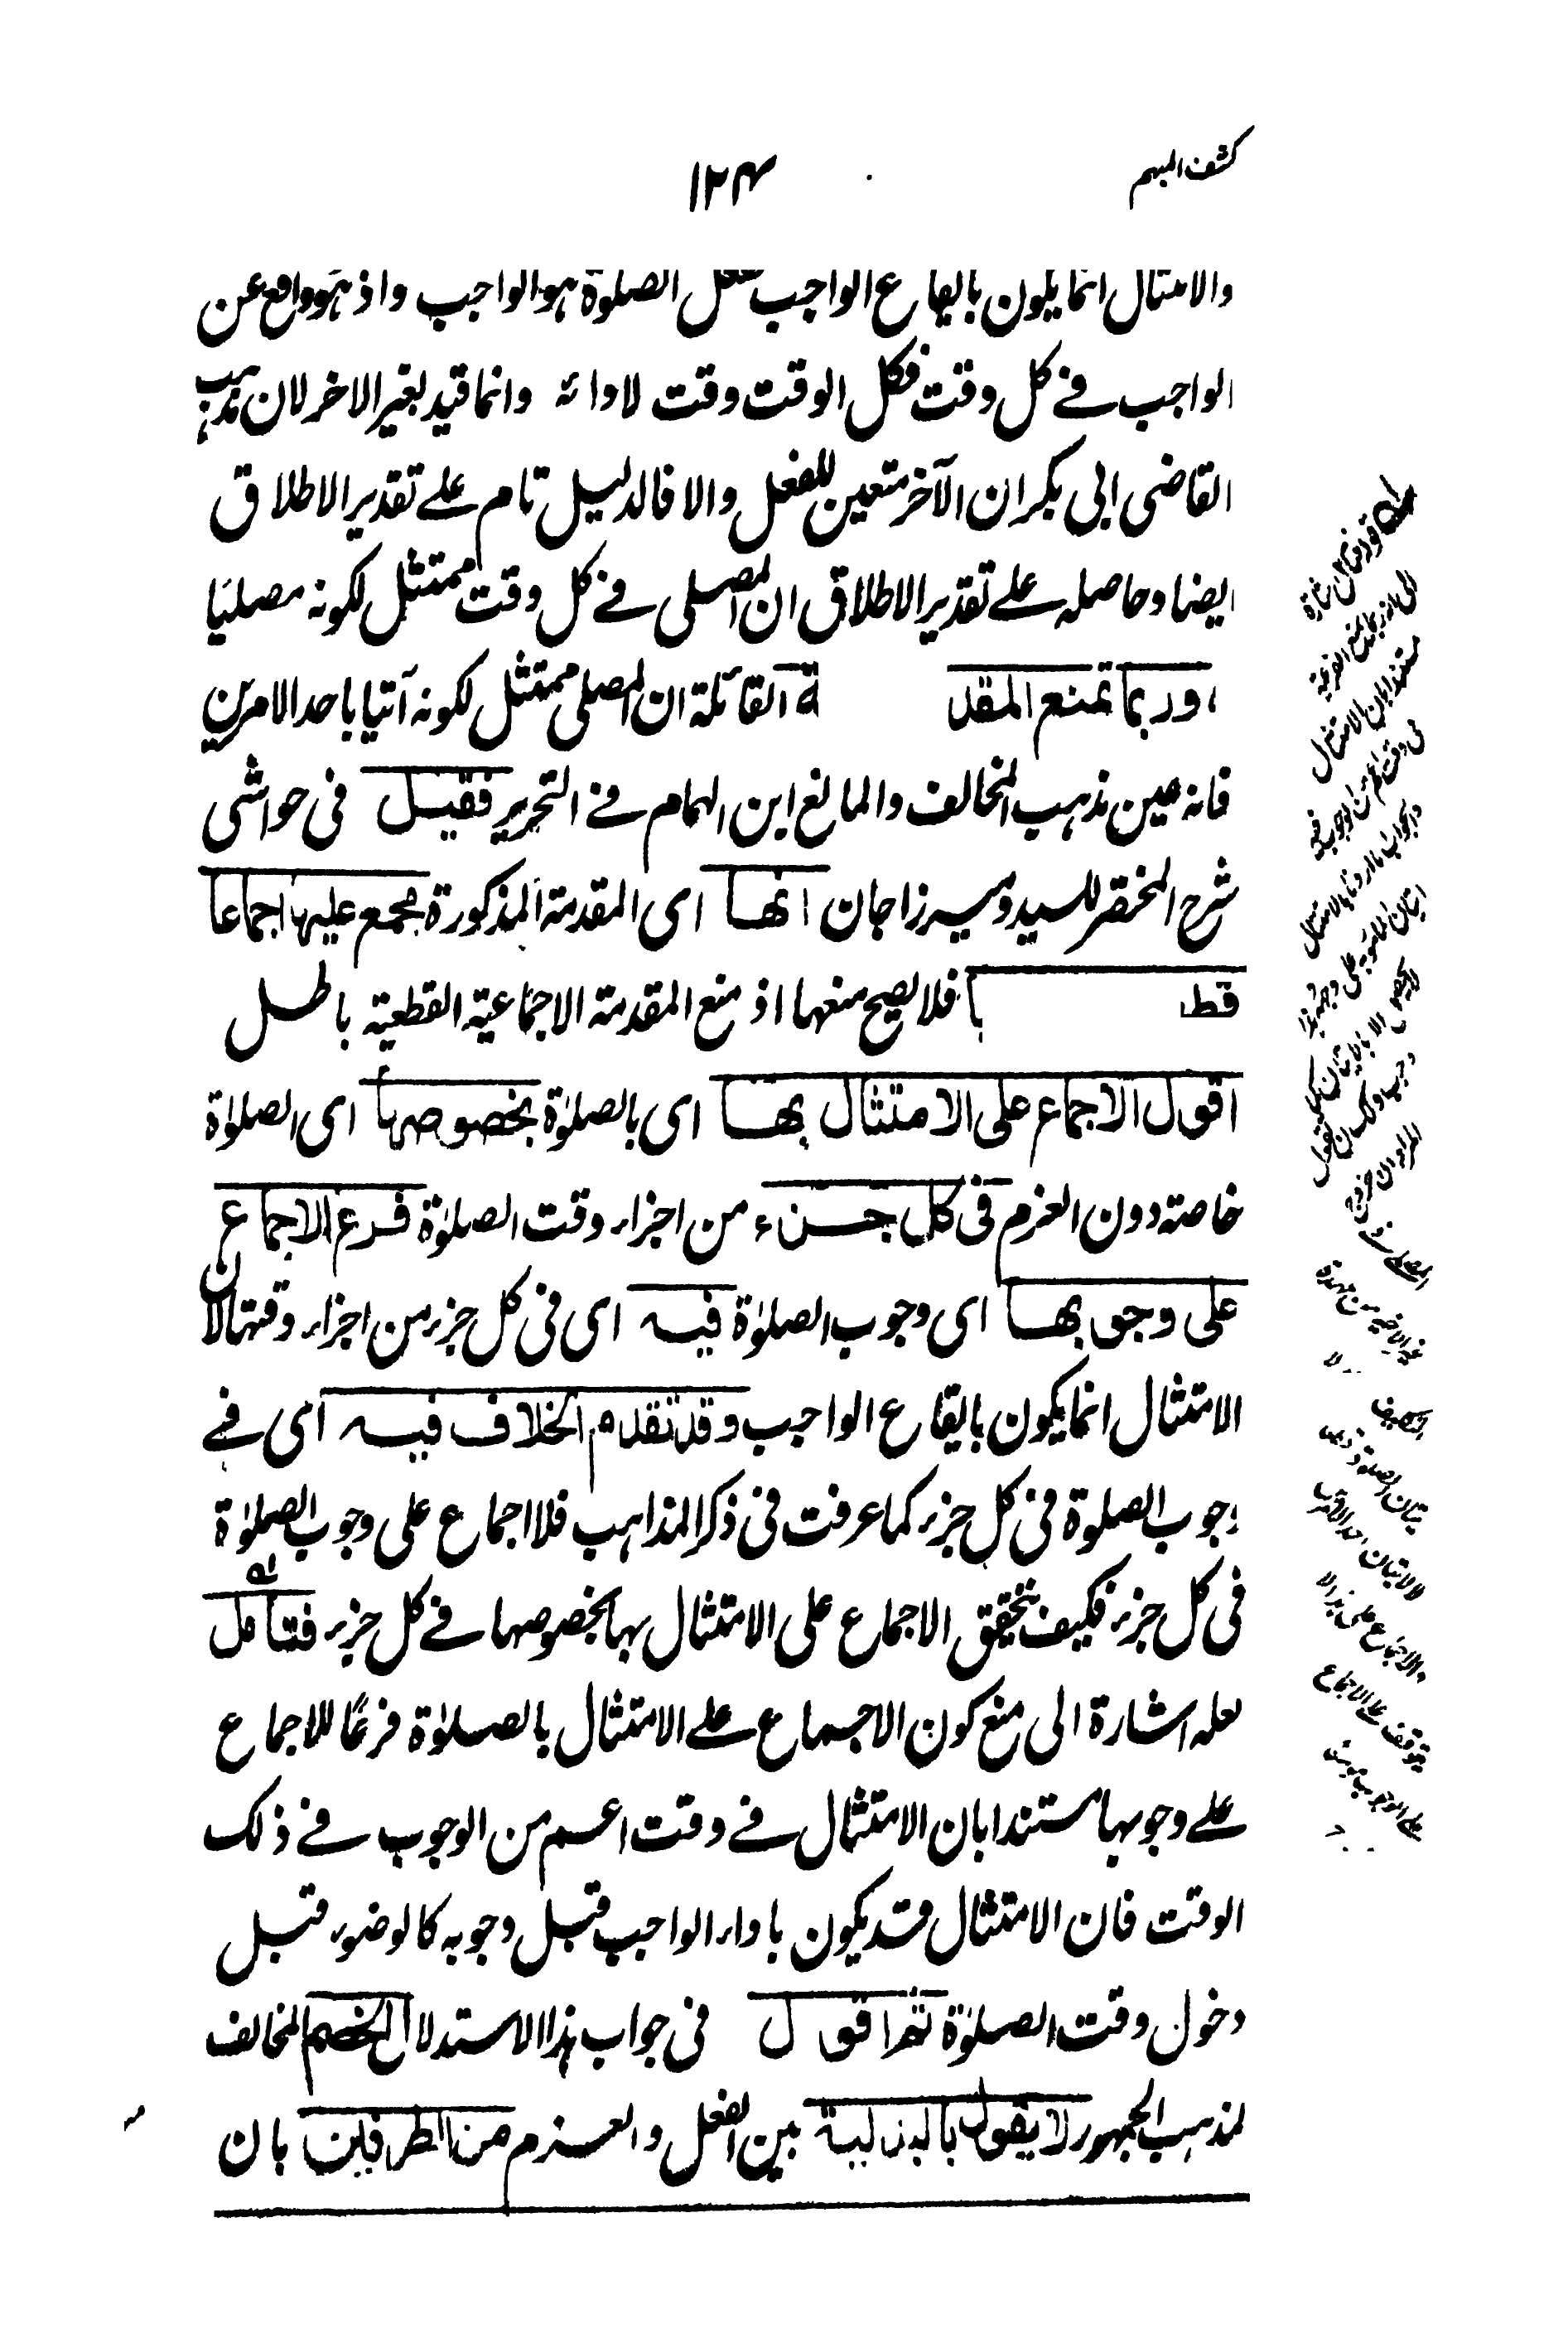 كشف المبهم
١٢٤
والامتثال انما يكون بايقاع الواجب ففعل الصلوة هو الواجب واذ هو واقع عن
الواجب في كل وقت فكل الوقت وقت لادائه وانما قيد بغير الاخر لان مذهب
القاضى ابى بكر ان الآخر متعين للفعل والا فالدليل تام على تقدير الاطلاق
ايضا وحاصله على تقدير الاطلاق ان المصلى في كل وقت ممتثل لكونه مصليا
وربما تمنع المقد مة القائلة ان المصلى ممتثل لكونه آتيا باحد الامرين
فانه عين مذهب المخالف والمانع ابن الهمام في التحرير فقيل فى حواشى
شرح المختصر للسيد وميرزاجان انها اى المقدمة المذكورة مجمع عليها اجماعا
قط يا فلا يصح منعها اذ منع المقدمة الاجماعية القطعية باطل
اقول الاجماع على الامتثال بها اى بالصلوٰة بخصوصها اى الصلوٰة
خاصة دون العزم فى كل جزء من اجزاء وقت الصلوٰة فرع الاجماع
على وجوبها اى وجوب الصلوٰة فيه اى فى كل جزء من اجزاء وقتها لان
الامتثال انما يكون بايقاع الواجب وقد تقدم الخلاف فيه اى في
وجوب الصلوة فى كل جزء كما عرفت فى ذكر المذاهب فلا اجماع على وجوب الصلوٰة
فى كل جزء فكيف يتحقق الاجماع على الامتثال بها بخصوصها في كل جزء فتأمل
لعله اشارة الى منع كون الاجماع على الامتثال بالصلوٰة فرعًا للاجماع
على وجوبها مستندا بان الامتثال في وقت اعم من الوجوب في ذلك
الوقت فان الامتثال قد يكون باداء الواجب قبل وجوبه كالوضوء قبل
دخول وقت الصلوٰة ثم اقول فى جواب هذا الاستدلال الخصم المخالف
لمذهب الجمهور لا يقول بالبدلية بين الفعل والعزم من الطرفين بان
قوله فتأمل اشارة
مستندا بان الامتثال